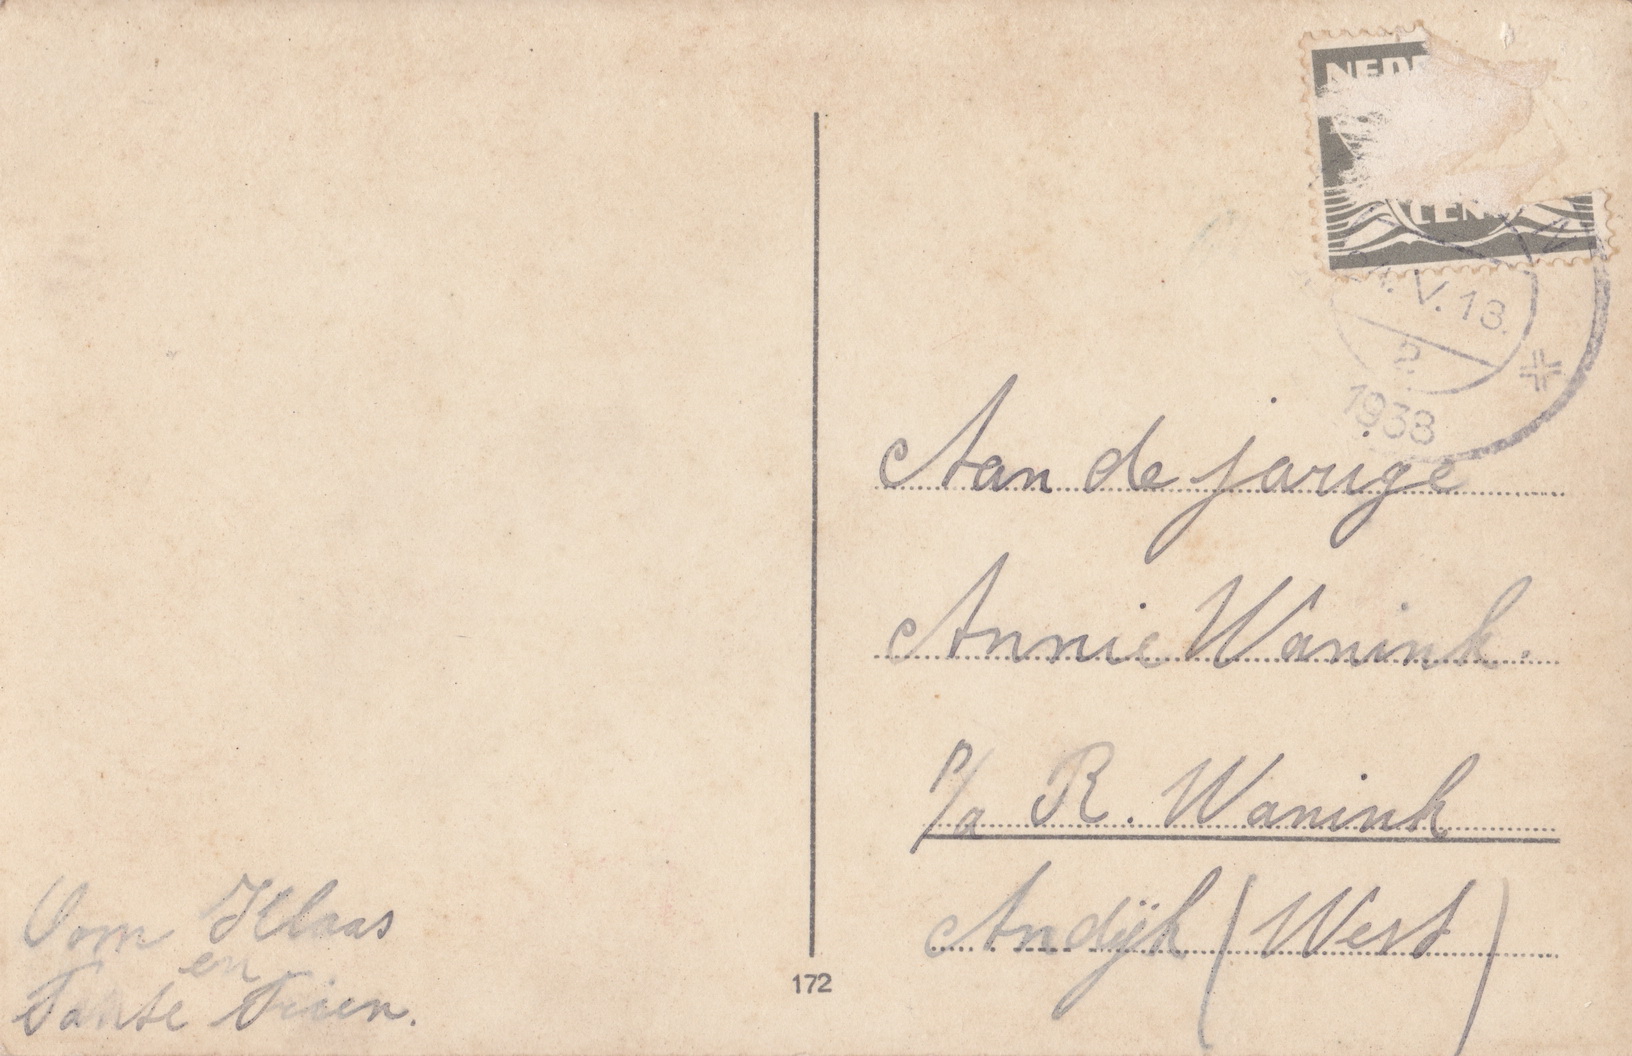 V. 13.
2
1938
Aan de jarige
Annie Wanink.
p/a R. Wanink
Andijk (West)
Oom Klaas
en
Tante Trien.
172